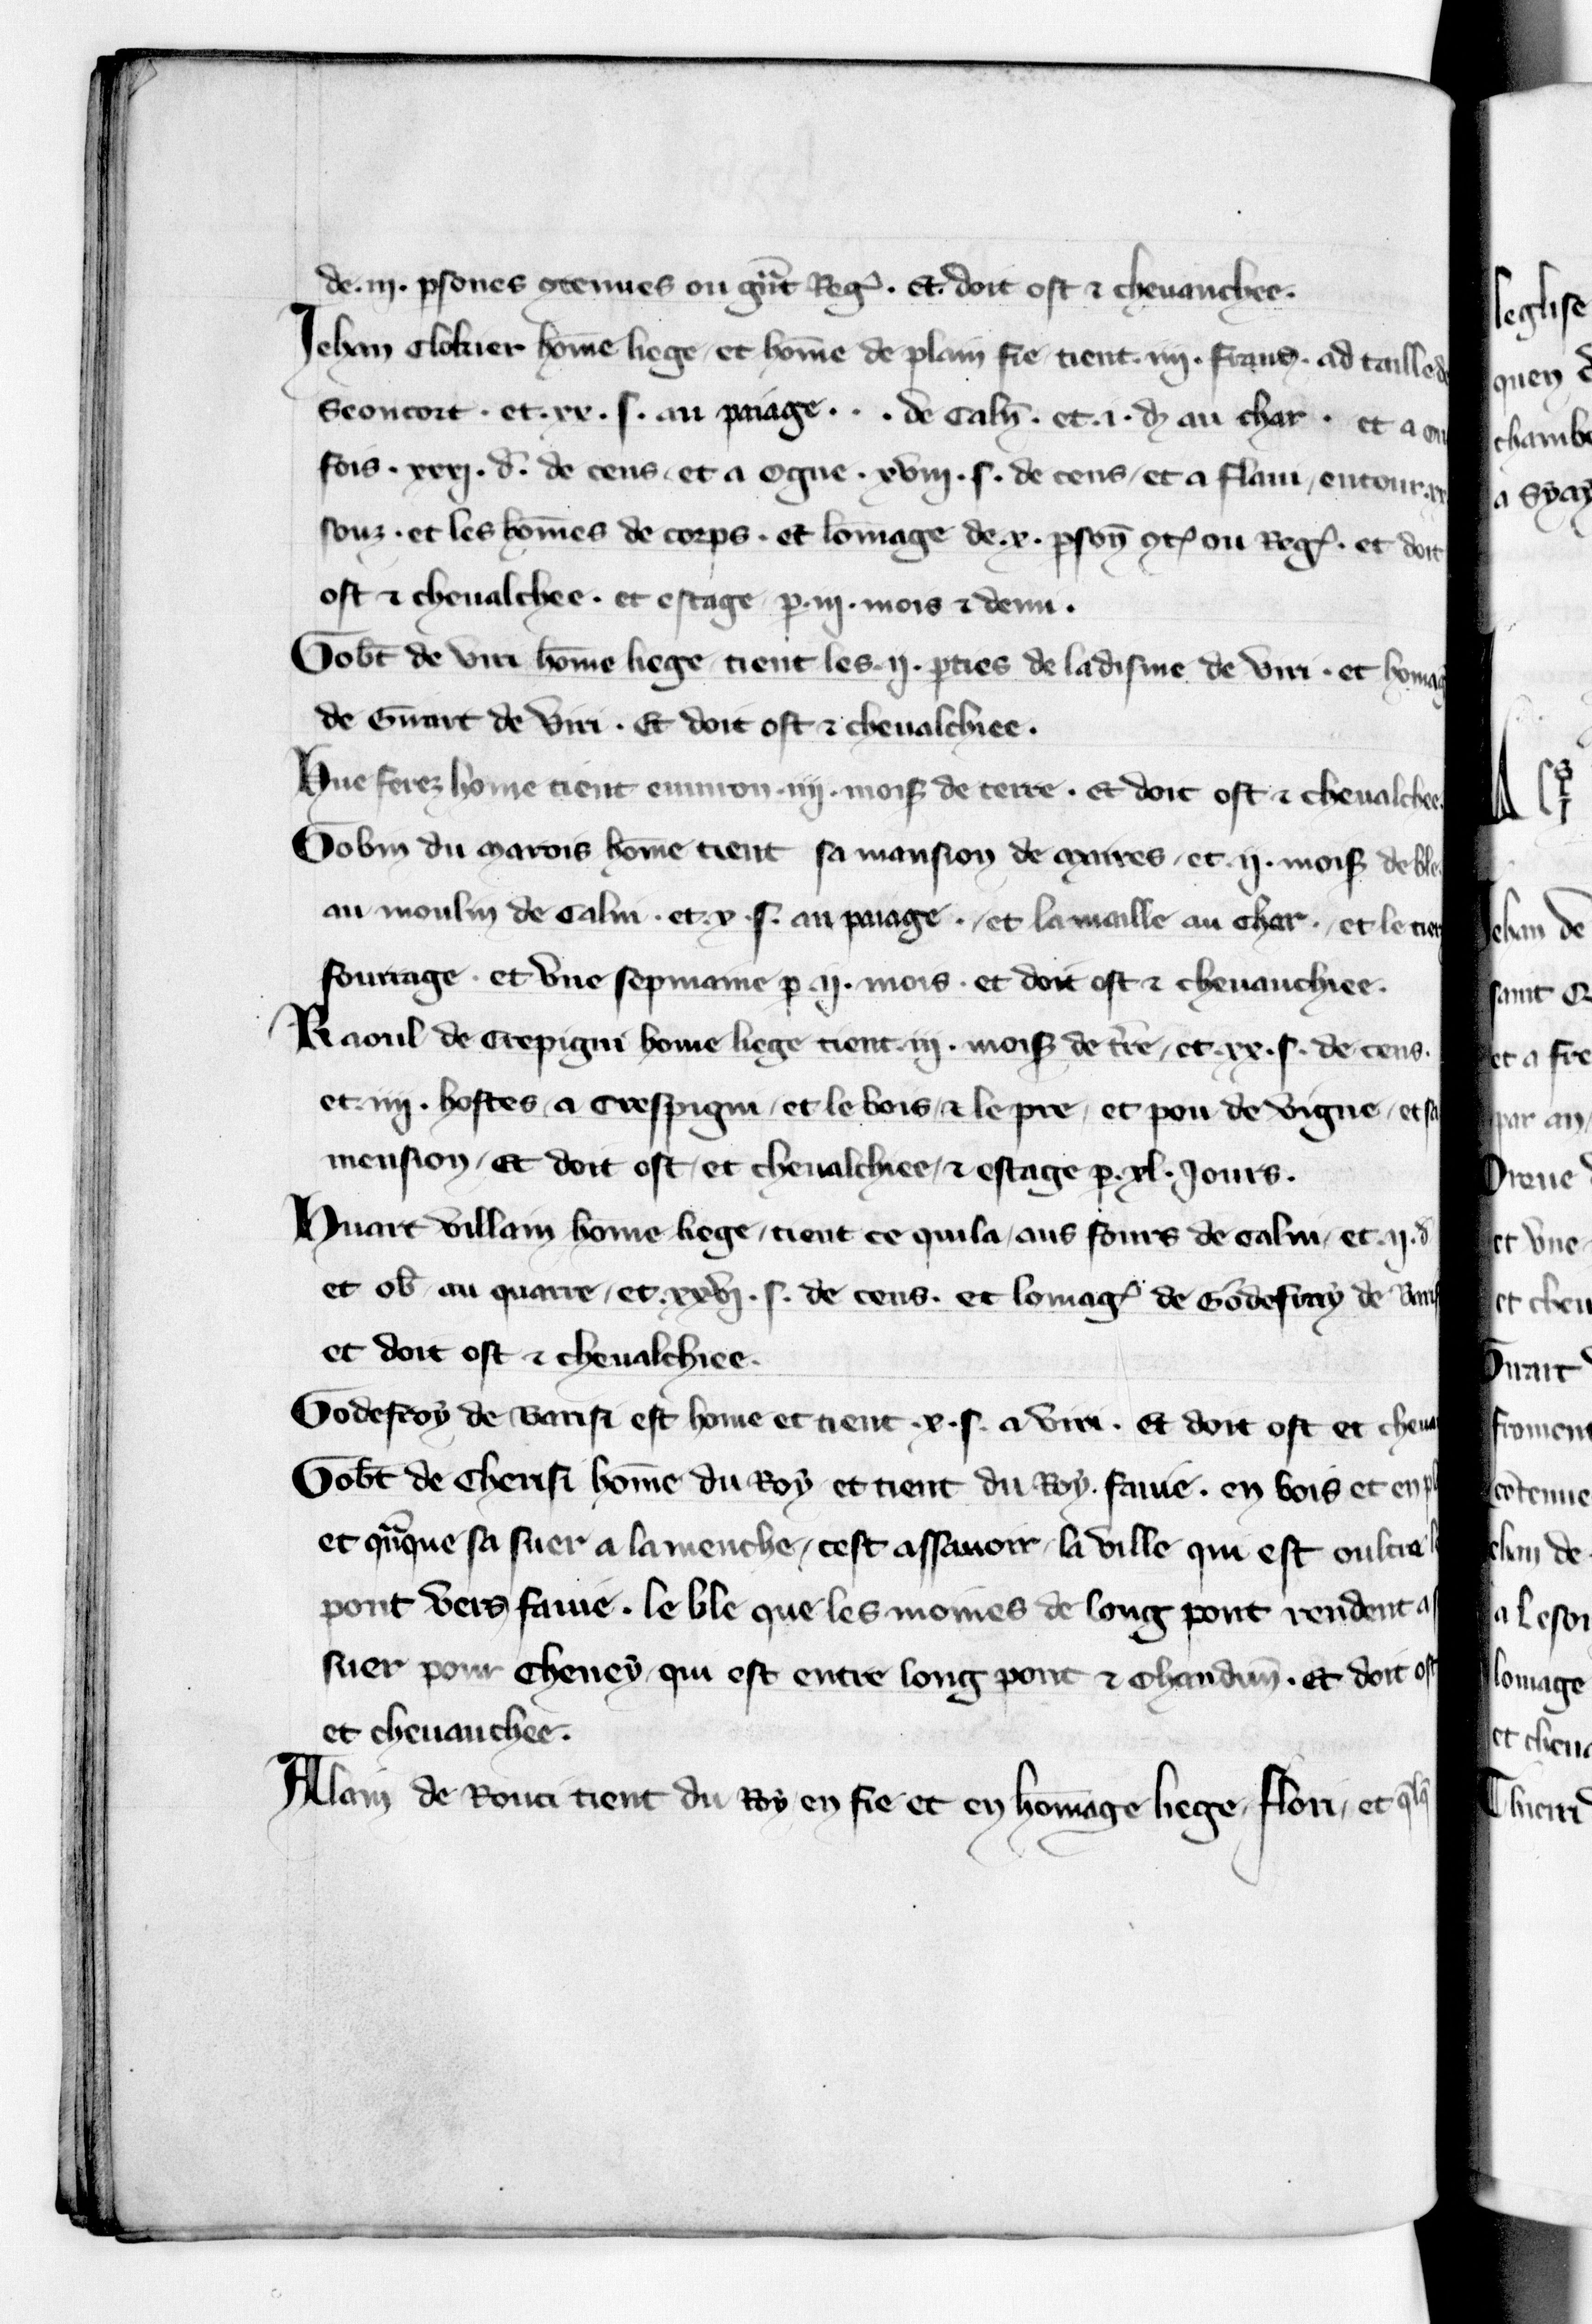 de .iij. psones 9tenues ou gnt Reg. Et doit ost ⁊ cheuauchee.
Jehan Clokier home liege et home de plain fie tient .iiij. franch. ad taille de
Seoncort . et .xx. s. au paiage . . . de Caln . et .i. au char . et a
fois . xxxj. d. de cens et a ogne . xviij. s. de cens / et a flaui / entour .xx
souz . et les homes de corps . et lomage de .x. pson 9t ou Reg . et doit
ost ⁊ cheualchee . et estage p .iij. mois ⁊ demi .
Gobt de viri home liege tient les .ij. pties de la disme de viri . et homag
de Girart de viri . Et doit ost ⁊ cheualchiee .
Hue ferez home tient enuiron .iiij. de terre . et doit ost ⁊ cheualchee.
Gobin du marois home tient sa mansion de maires / et .ij. de ble.
au moulin de Calni . et .x. s. au paiage . / et la maille au char . / et le tierz
fourrage . et vne sepmaine p .ij. mois . et doit ost ⁊ cheuauchiee .
Raoul de Crepigni home liege tient .iij. de tre / et .xx. s. de cens .
et .iiij. hostes / a Crespigni / et le bois / ⁊ le pre / et pou de vigne / et sa
mension / Et doit ost / et cheualchiee / ⁊ estage p .xl. Jours .
Huart villain home liege / tient ce quil a / aus fours de Calni / et .ij. d
et ob au quarre / et .xxvj. s. de cens . et lomag de Godefray de Baris
et doit ost ⁊ cheualchiee .
Godefroy de Barisi est home et tient .x. s. a viri . Et doit ost et cheua
Gobt de Cherisi home du Roy et tient du Roy . fauie . en bois et en pl
et qnque sa suer a lamenche / cest assauoir / la ville qui est oultre l
pont vers fauie . le ble que les moines de long pont rendent a s
suer pour Cheney / qui est entre long pont ⁊ Chandun . Et doit ost
et cheuauchee .
Alain de Rouci tient du Roy en fie et en homage liege / flori / et qlq
leglise
quen d
chambe
a Syay
ehan de
saint
et a fre
par an
Dreue
et vne
et cheu
Girart
froment
contenue
ehan de
a Leson
lomage
et cheua
Thierri